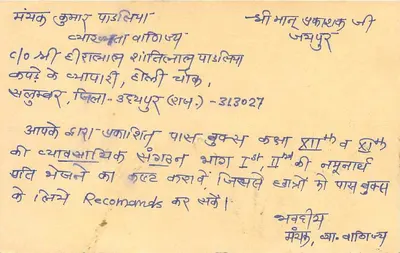 मयंक कुमार पाडलिया
श्रीमान् प्रकाशक जी
व्याख्याता वाणिज्य
जयपुर
C/o श्री हीरालाल शांतिलाल पाडलिया
कपड़े के व्यापारी, होली चौक,
सलुम्बर, जिला-उदयपुर (राज.) - 313027
आपके द्वारा प्रकाशित पास बुक्स कक्षा XIIth व XIth
की व्यावसायिक संगठन भाग Ist IInd की नमूनार्थ
प्रति भेजने का कष्ट करावें, जिससे छात्रों को पास बुक्स
के लिये Recomands कर सकें।
भवदीय
मंयक, व्या. वाणिज्य